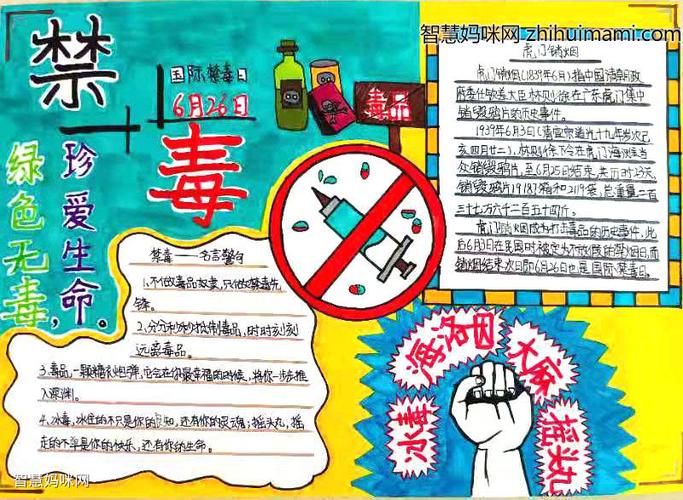 智慧妈咪网 zhihuimami.com
禁毒
国际禁毒日
6月26日
毒品
珍爱生命。
绿色无毒,
虎门销烟
虎门销烟(1839年6月)指中国清朝政
府委任钦差大臣林则徐在广东虎门集中
销毁鸦片的历史事件。
1939年6月3日(清宣宗道光十九年岁次己
亥四月廿二),林则徐下令在虎门海滩当
众销毁鸦片,至6月25日结束,共历时23天,
销毁鸦片19187箱和2119袋,总重量二百
三十七万六千二百五十四斤。
虎门销烟成为打击毒品的历史事件,此
后6月3日在民国时被定为不放假的禁烟日,而
销烟结束次日即6月26日也是国际禁毒日。
禁毒——名言警句
1、不做毒品,只做禁毒先
锋。
2、分分秒秒抵制毒品,时时刻刻
远离毒品。
3.毒品,一颗糖衣炮弹,它会在你最幸福的时候,将你一步步推
入深渊。
4、冰毒,冰住的不只是你的良知,还有你的灵魂;摇头丸,摇
走的不单是你的快乐,还有你的生命。
冰毒
海洛因
大麻
摇头丸
智慧妈咪网